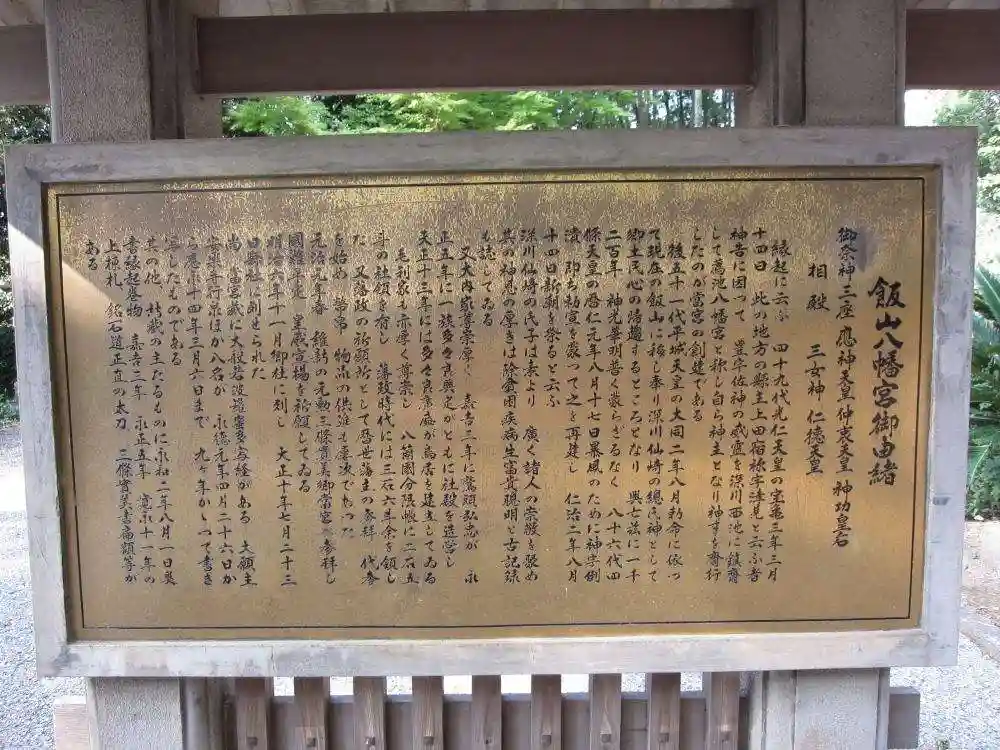 飯山八幡宮御由緒
御祭神三座 應神天皇 仲哀天皇 神功皇后
相殿 三女神 仁徳天皇
縁起に云ふ 四十九代光仁天皇の宝亀三年三月
十四日 此の地方の縣主上田宿祢宇津見と云ふ者
神告に因って 豊宇佐神の威霊を深川西池に鎮齋
して萬池八幡宮と称し自ら神主となり神事を齋行
したのが當宮の創建である
後五十一代平城天皇の大同二年八月勅命に依っ
て現在の飯山に移し奉り深川仙崎の總氏神として
御士民心の帰趨するところとなり 興亡茲に一千
二百年 神光華明普く衰らぎるなく 八十六代四
條天皇の暦仁元年八月十七日暴風のために神宇倒
潰 即ち勅宣を蒙って之を再建し 仁治二年八月
十四日新朝を祭ると云ふ
深川仙崎の氏子は素より 廣く諸人の崇敬を聚め
其の神恩の厚きは除貧困疾病生富貴聰明と古記録
も誌してゐる
又大内家尊崇厚く 嘉吉三年に鷲頭弘忠が 永
正五年に一族多々良興定がともに社殿を造営し
天正十三年には多々良廣盛が鳥居を建立してゐる
毛利家も亦厚く尊崇し 八箇國分限帳に二石五
斗の社領を有し 藩政時代には三石六斗余を領し
た 又藩政の祈願所として歴世藩主の参拝 代参
を始め 幣帛 物品の供進も屡次であった
元治元年春 維新の元勲三條實美卿當宮へ参拝し
國難平定 皇威宣揚を祈願してゐる
明治六年十一月郷社に列し 大正十年七月二十三
日縣社に列せられた
尚 當宮蔵に大般若波羅蜜多経がある 大願主
安藝守行泉ほか八名が 永徳元年四月二十六日か
ら應永十四年三月六日まで 九ヶ年かゝって書き
写したものである
其の他 所蔵の主たるものに永和二年八月一日奥
書縁起巻物 嘉吉三年 永正五年 寛永十一年の
上棟札 銘石道正直の太刀 三條實美書扁額等が
ある